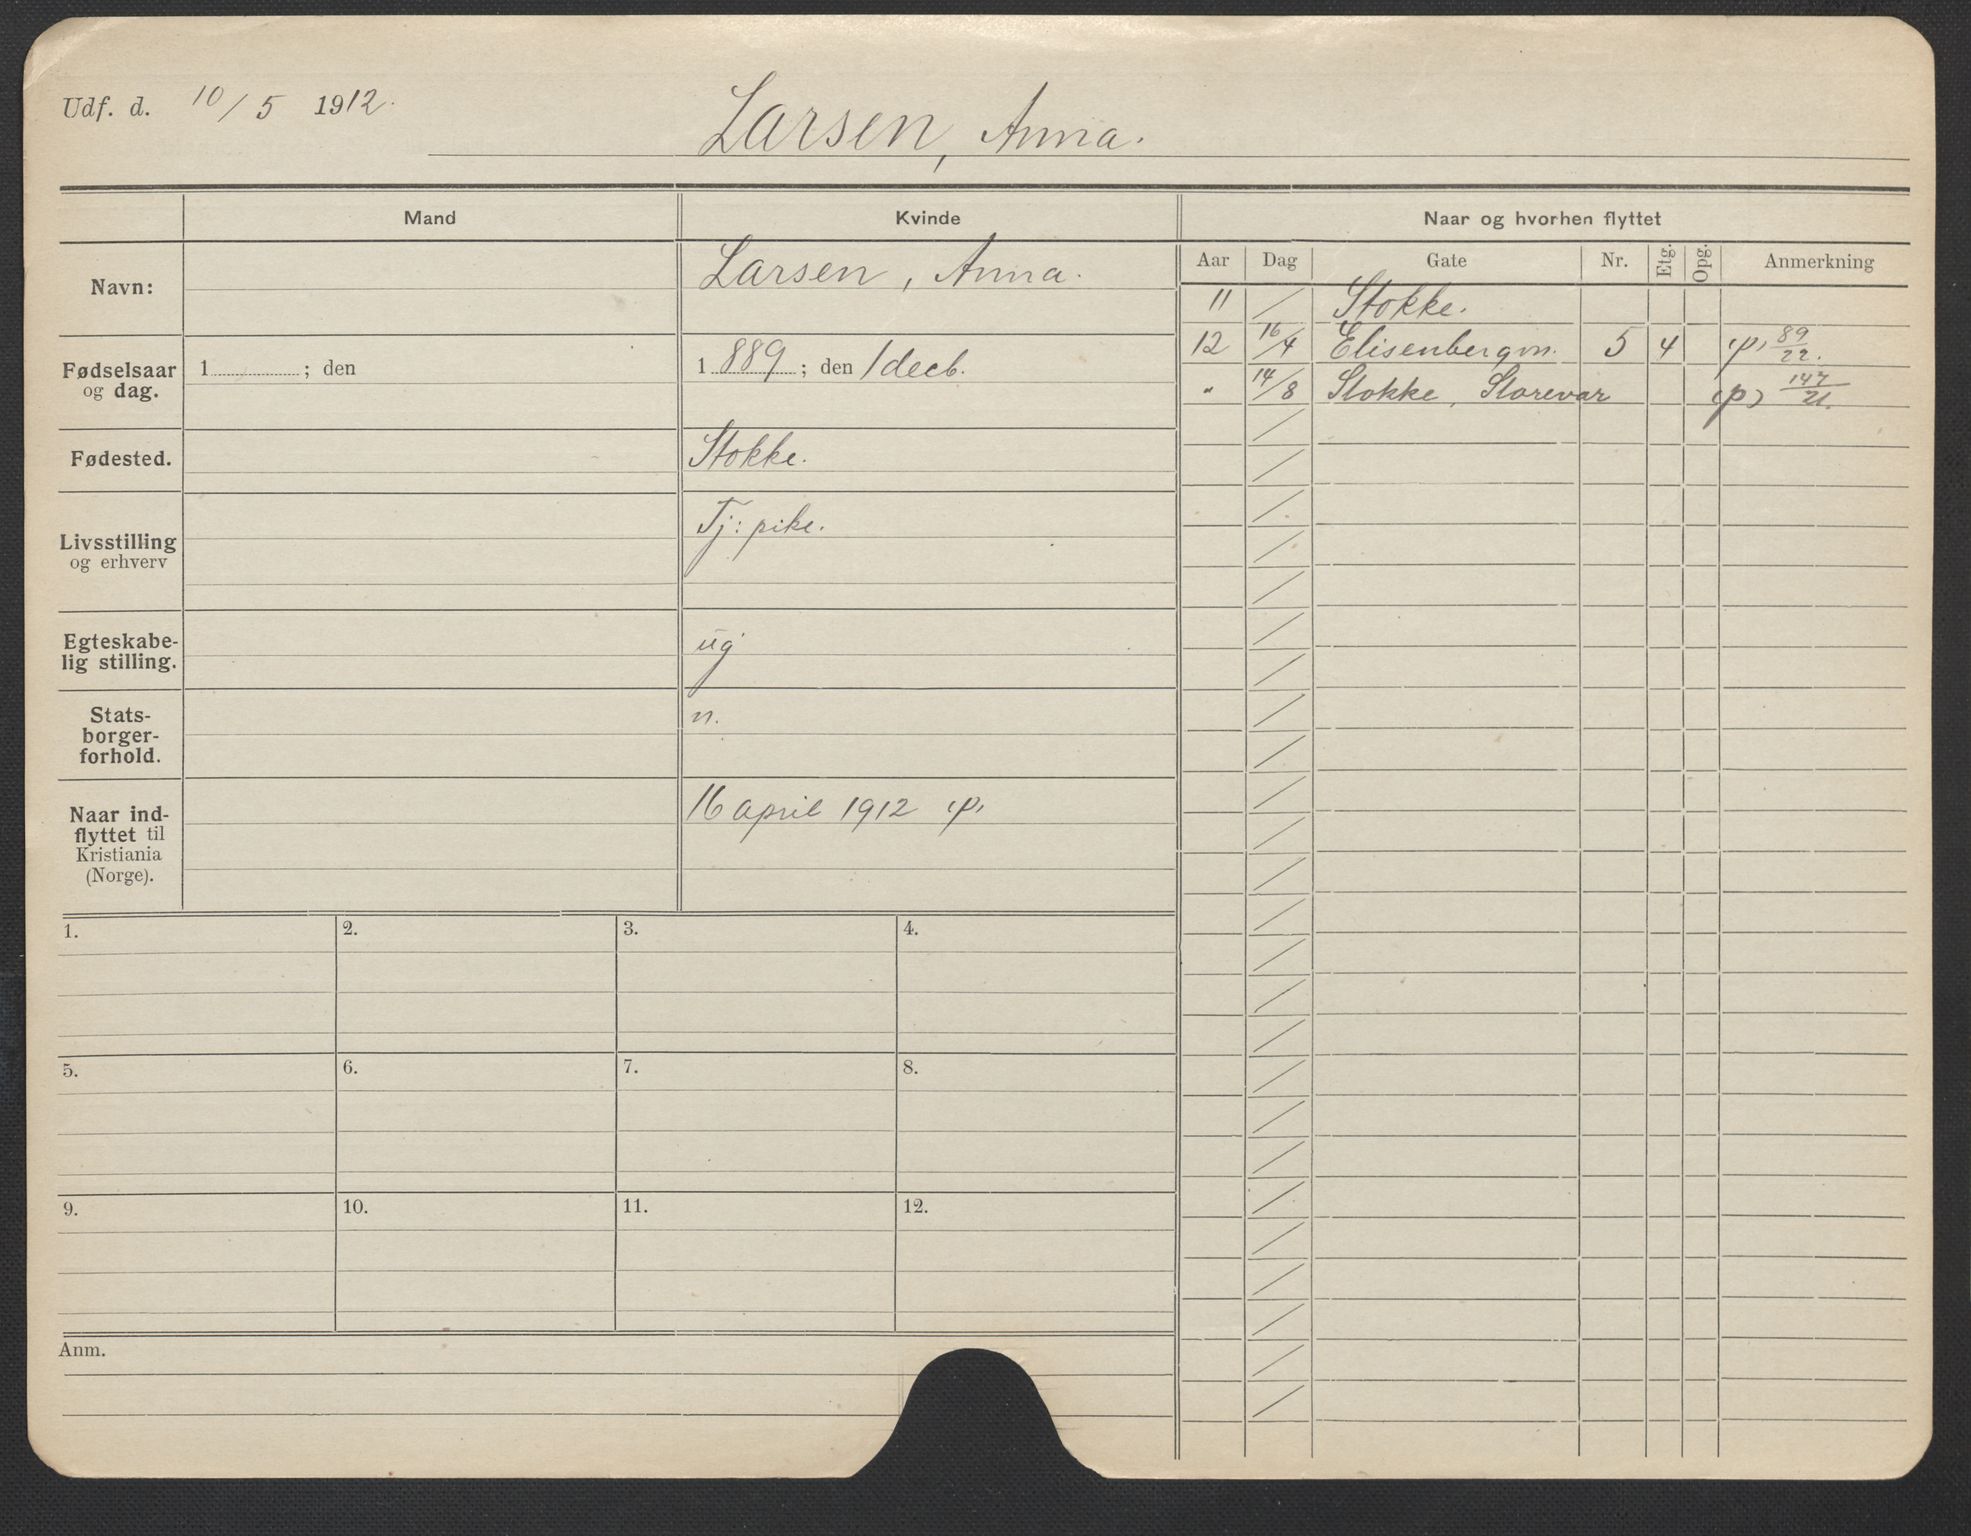 Udf. d. 10/5 1912.
Larsen, Anna.
Mand
Kvinde
Naar og hvorhen flyttet
Aar Dag Gate Nr. Etg. Opg. Anmerkning
Navn:
Larsen, Anna.
Fødselsaar
og dag.
1 ; den
1 889 ; den 1 decb.
Fødested.
Stokke.
Livsstilling
og erhverv
Tj: pike.
Egteskabe-
lig stilling.
ug
Stats-
borger-
forhold.
n.
Naar ind-
flyttet til
Kristiania
(Norge).
16 april 1912 (p)
11 / Stokke.
12 16/4 Elisenbergvn. 5 4 (p) 89/22.
" 14/8 Stokke, Storevar (p) 147/21.
1.
2.
3.
4.
5.
6.
7.
8.
9.
10.
11.
12.
Anm.